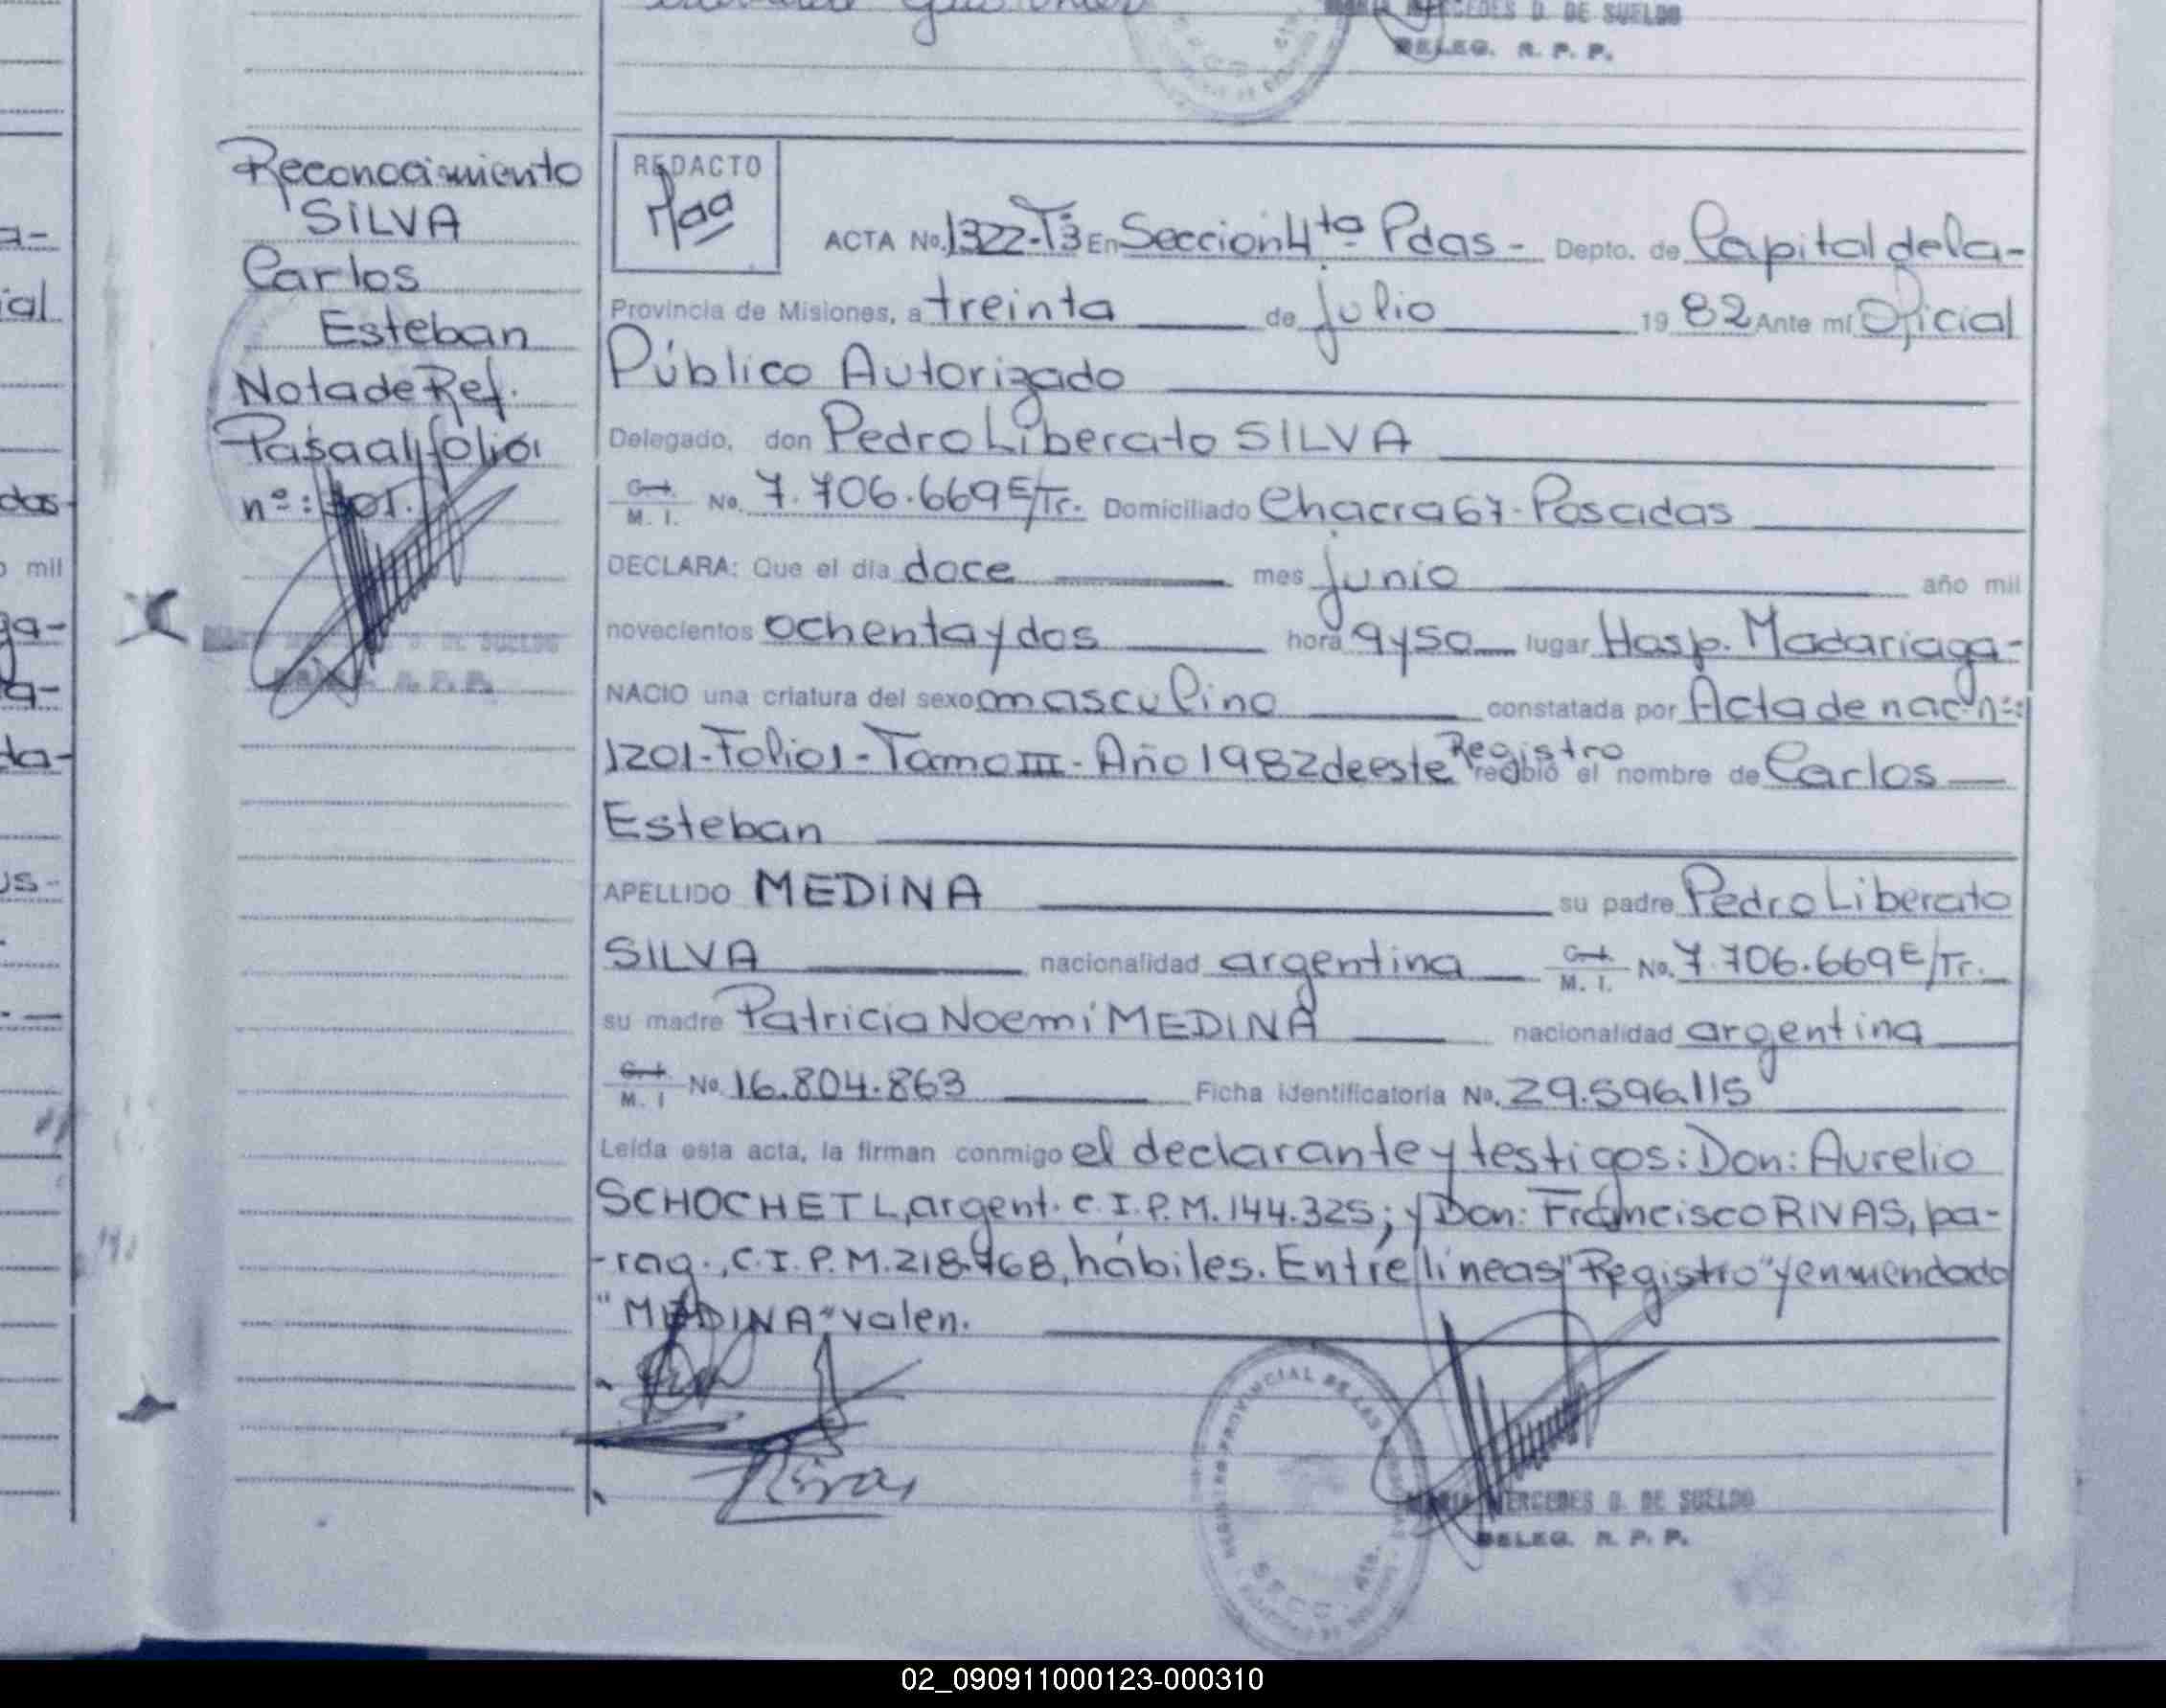 MERCEDES D. DE SUELDO
DELEG. R. P. P.
Reconocimiento
SILVA
Carlos
Esteban
Nota de Ref.
Pasa al folio
nº:
REDACTO
ACTA No. 1322-T3 En Seccion 4ta Pdas - Depto. de Capital de la-
Provincia de Misiones, a treinta de julio 1982 Ante mí Oficial
Público Autorizado
Delegado, don Pedro Liberato SILVA
C. I. M. I. No. 7.706.669 E/Tr. Domiciliado Chacra 67-Posadas
DECLARA: Que el día doce mes junio año mil
novecientos ochenta y dos hora 9 y 50 lugar Hosp. Madariaga-
NACIO una criatura del sexo masculino constatada por Acta de nac. nº:
1201-Folio 1-Tomo III-Año 1982 de este Registro recibió el nombre de Carlos
Esteban
APELLIDO MEDINA su padre Pedro Liberato
SILVA nacionalidad argentina C. I. M. I. No. 7.706.669 E/Tr.
su madre Patricia Noemí MEDINA nacionalidad argentina
C. I. M. I No. 16.804.863 Ficha identificatoria No. 29.596.115
Leída esta acta, la firman conmigo el declarante y testigos: Don: Aurelio
SCHOCHET L, argent. C.I.P.M. 144.325; y Don: Francisco RIVAS, pa-
-rag., C.I.P.M. 218.968, hábiles. Entre líneas "Registro" y enmendado
"MEDINA" valen.
Rivas
REGISTRO PROVINCIAL DE LAS PERSONAS
MARIA MERCEDES D. DE SUELDO
DELEG. R. P. P.
02_090911000123-000310